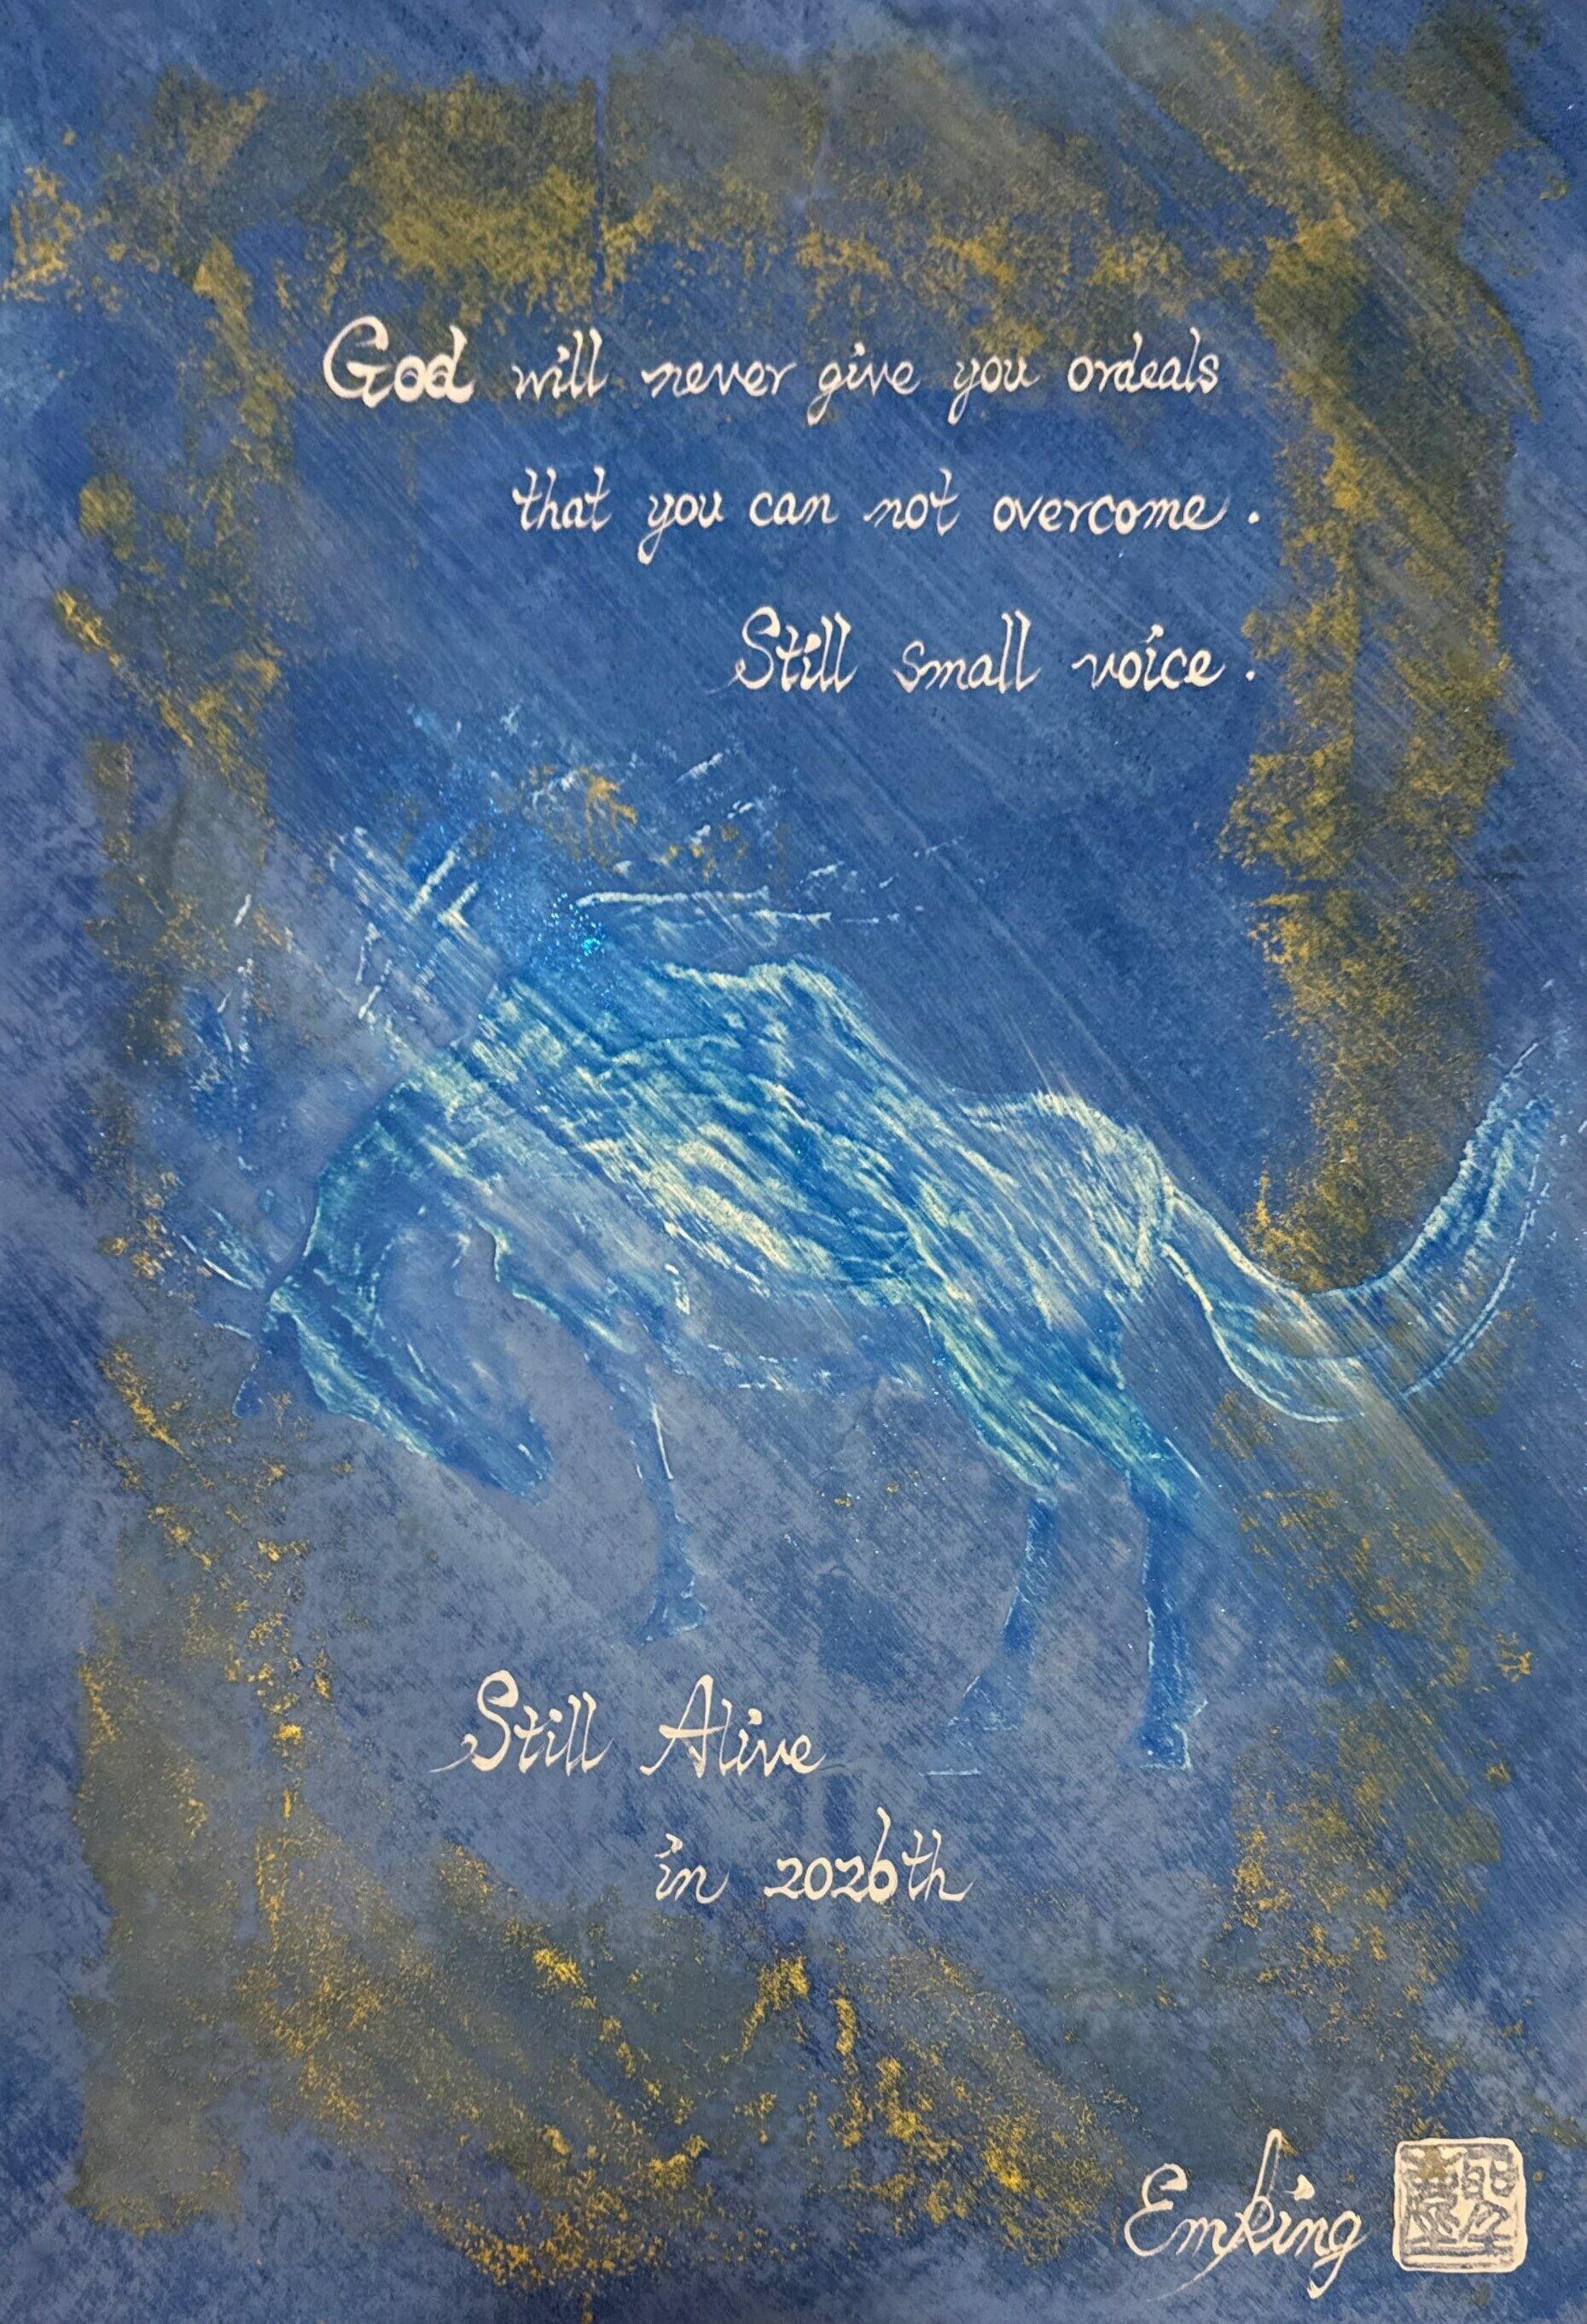 God will never give you ordeals
that you can not overcome.
Still small voice.
Still Alive
in 2026th
Emking